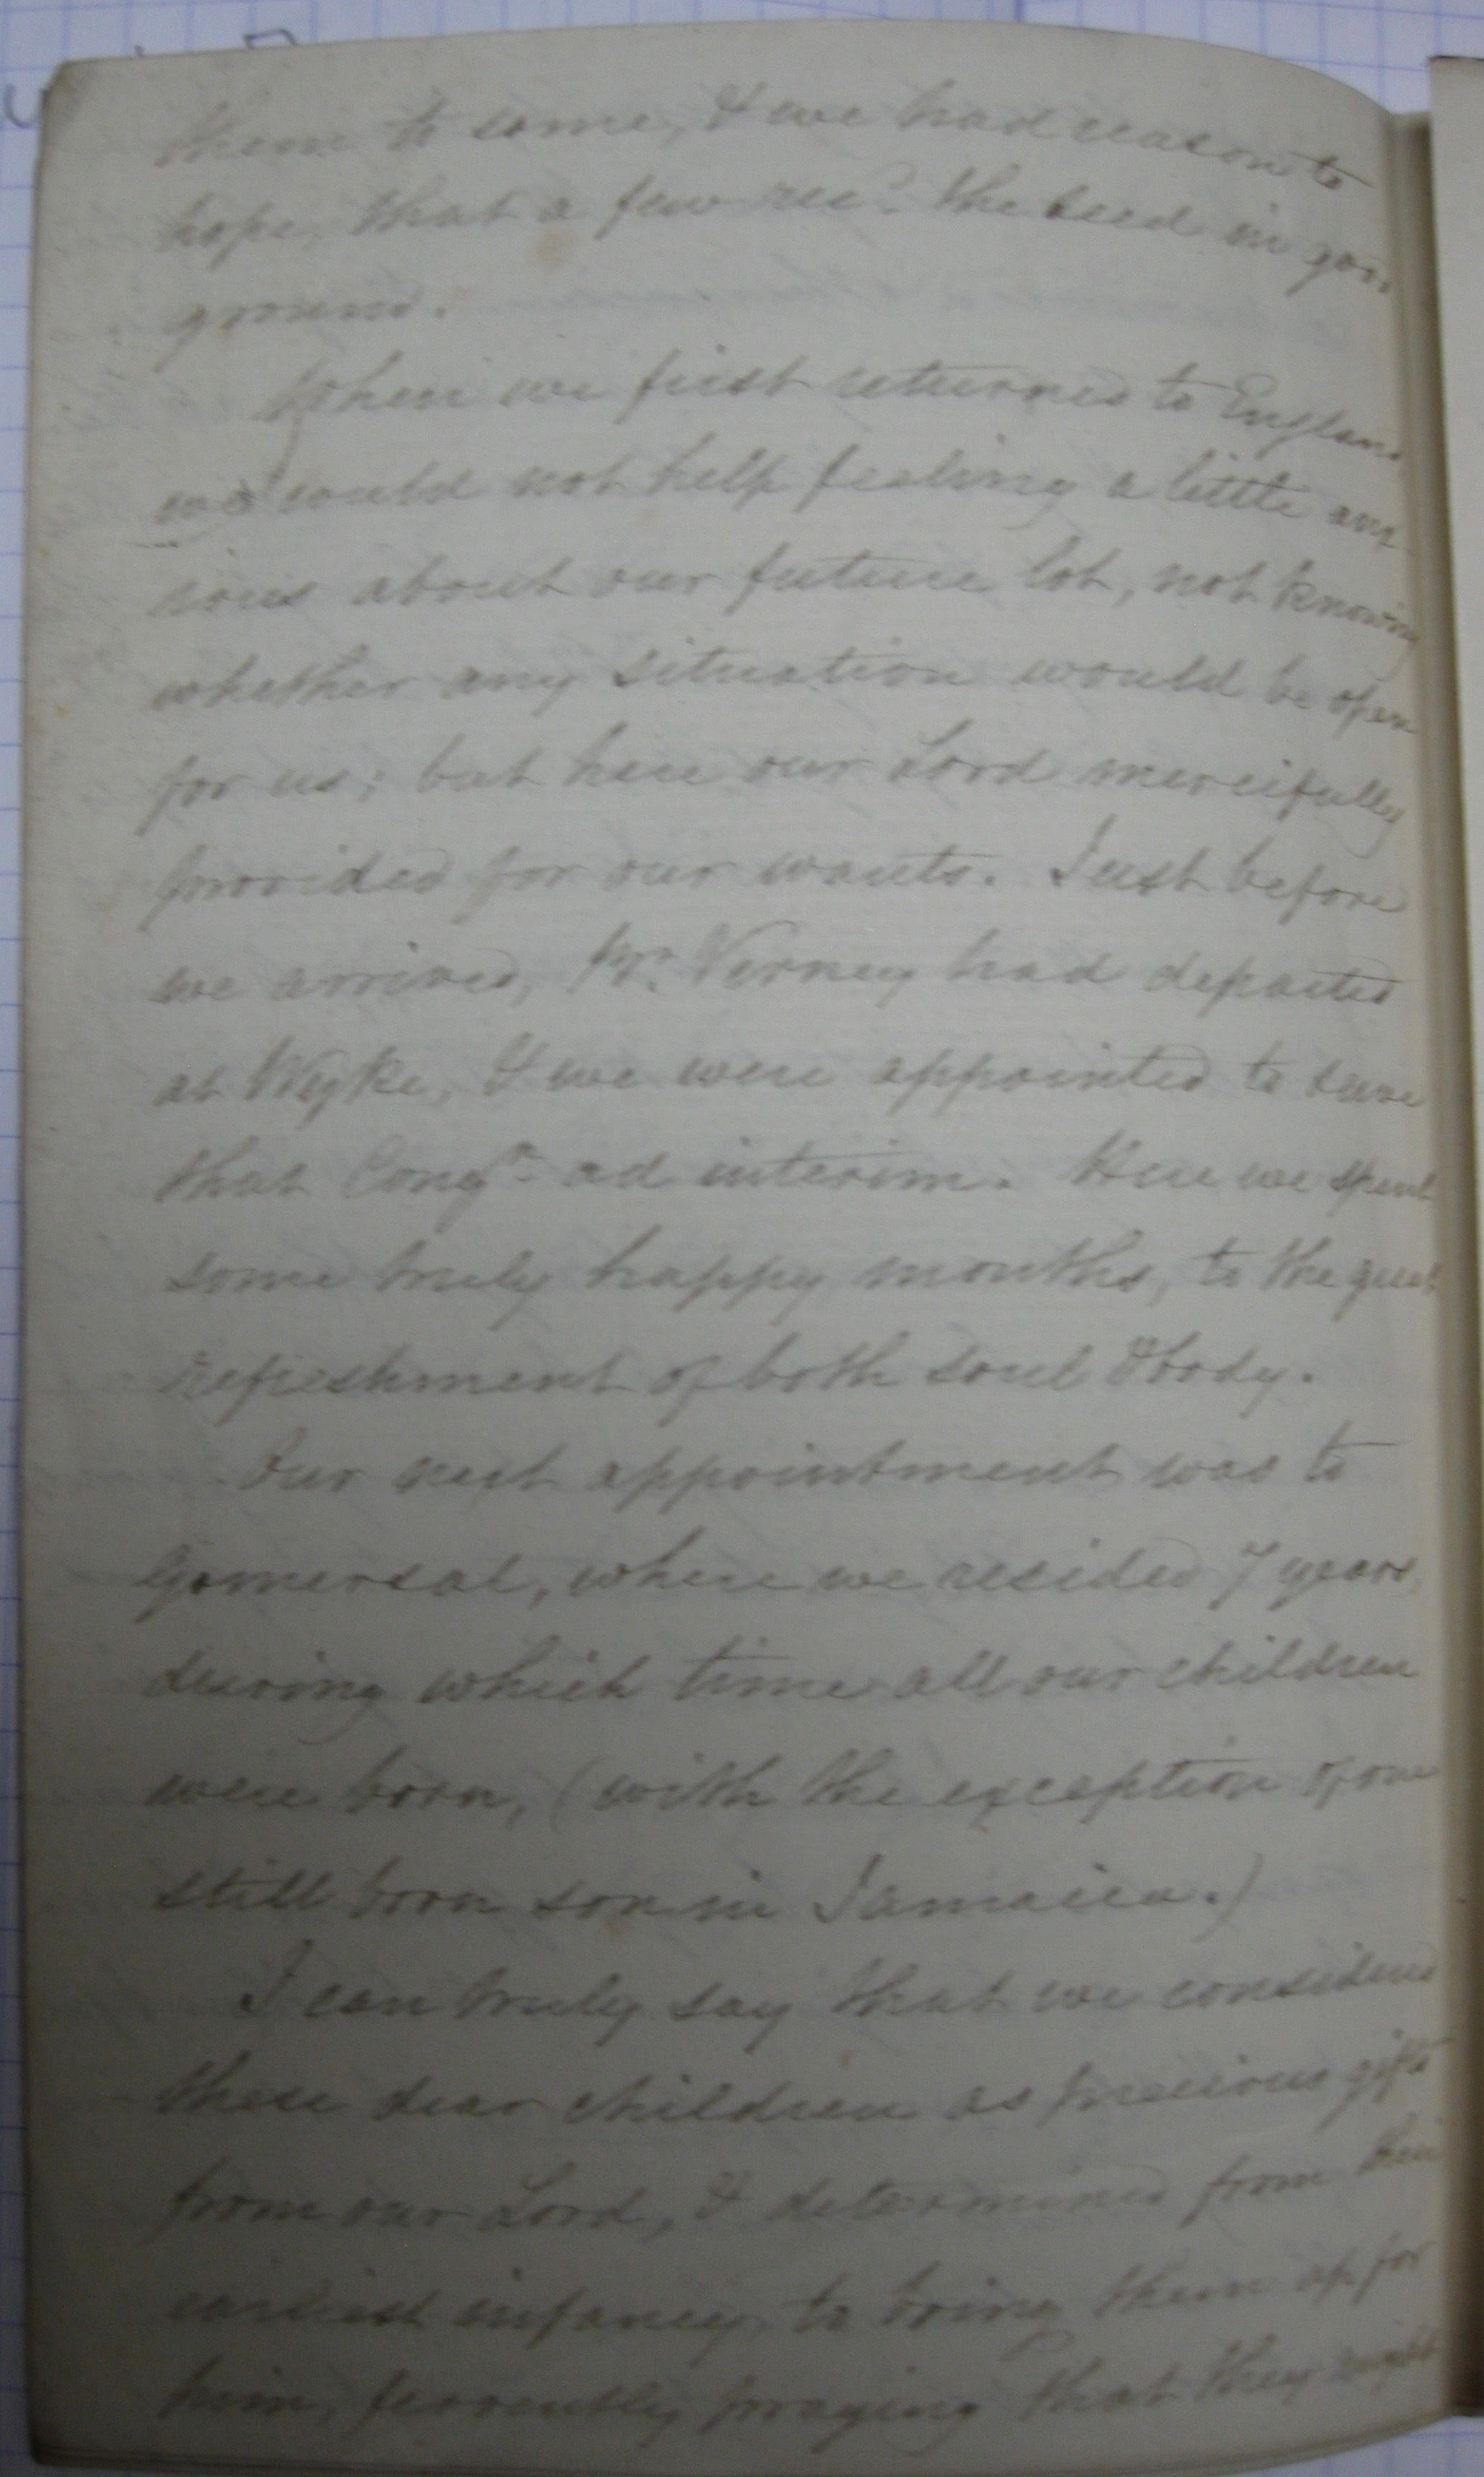 them to some, & we had reason to
hope, that a few recd. the seed in good
ground.
When we first returned to England
we could not help feeling a little anx-
ious about our future lot, not knowing
whether any situation would be open
for us; but here our Lord mercifully
provided for our wants. Just before
we arrived, Br. Verney had departed
at Wyke, & we were appointed to serve
that Congn. ad interim. Here we spent
some truly happy months, to the great
refreshment of both soul & body.
Our next appointment was to
Gomersal, where we resided 7 years,
during which time all our children
were born, (with the exception of one
still born son in Jamaica.)
I can truly say that we considered
these dear children as precious gifts
from our Lord, & determined from their
earliest infancy, to bring them up for
him, fervently praying that they might